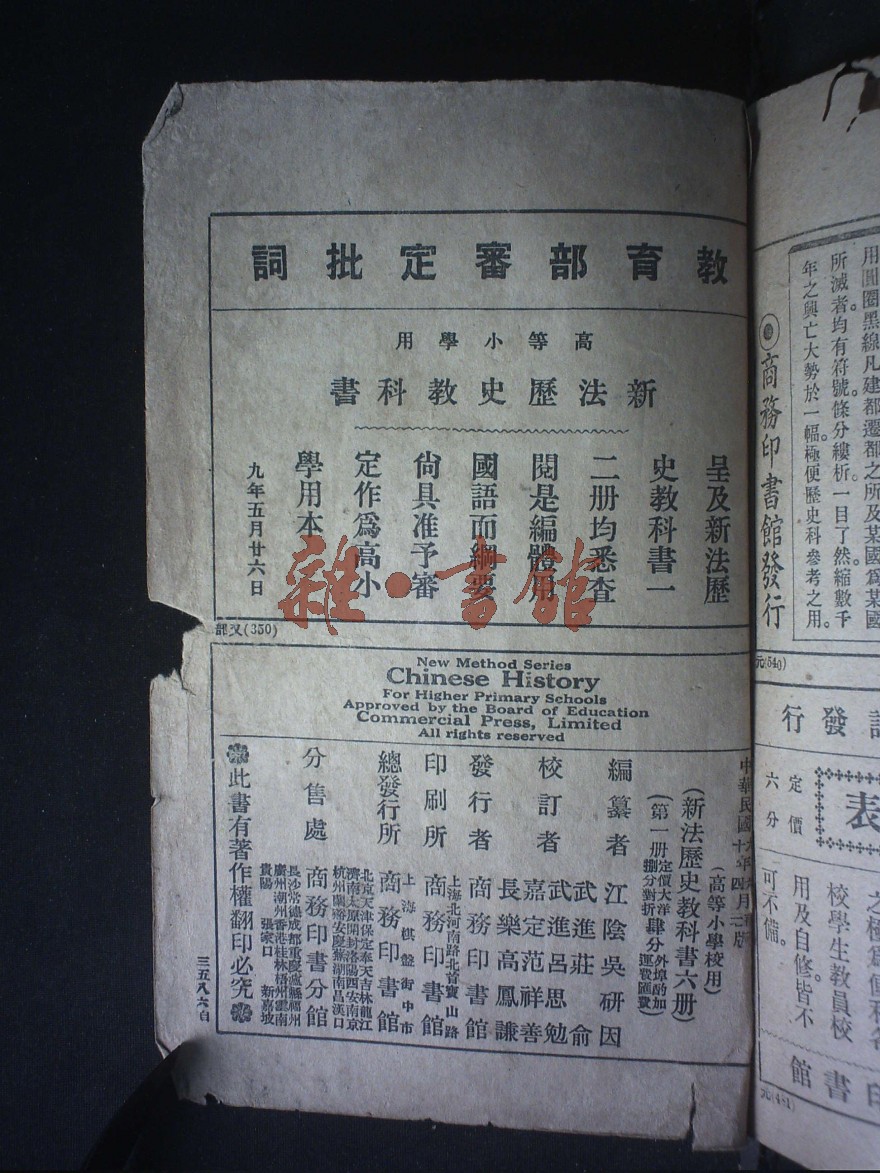 教育部審定批詞
高等小學用
新法歷史教科書
呈及新法歷
史教科書一
二册均悉查
閱是編體用
國語而綱要
尙具准予審
定作爲高小
學用本
九年五月廿六日
(350)
雜·書館
New Method Series
Chinese History
For Higher Primary Schools
Approved by the Board of Education
Commercial Press, Limited
All rights reserved
(高等小學校用)
(新法歷史教科書六册)
(第一册定價大洋肆分外埠酌加
捌分對折運費匯費)
編纂者 江陰吳研因
武進莊俞
校訂者 武進呂思勉
嘉定范祥善
長樂高鳳謙
發行者 商務印書館
上海北河南路北首寶山路
印刷所 商務印書館
上海棋盤街中市
總發行所 商務印書館
北京天津保定奉天吉林龍江
濟南太原開封洛陽西安南京
杭州蘭谿安慶蕪湖南昌漢口
分售處 商務印書分館
長沙常德成都重慶瀘縣福州
廣州潮州香港桂林梧州雲南
貴陽 張家口 新嘉坡
此書有著作權翻印必究
三五八六自
用圓圈黑線凡建都遷都之所及某國爲某國
所滅者均有符號條分縷析一目了然縮數千
年之興亡大勢於一幅極便歷史科參考之用。
商務印書館發行
元(540)
發行
表
定價
六分
校學生教員校
用及自修皆不
可不備。
印書館
元(481)